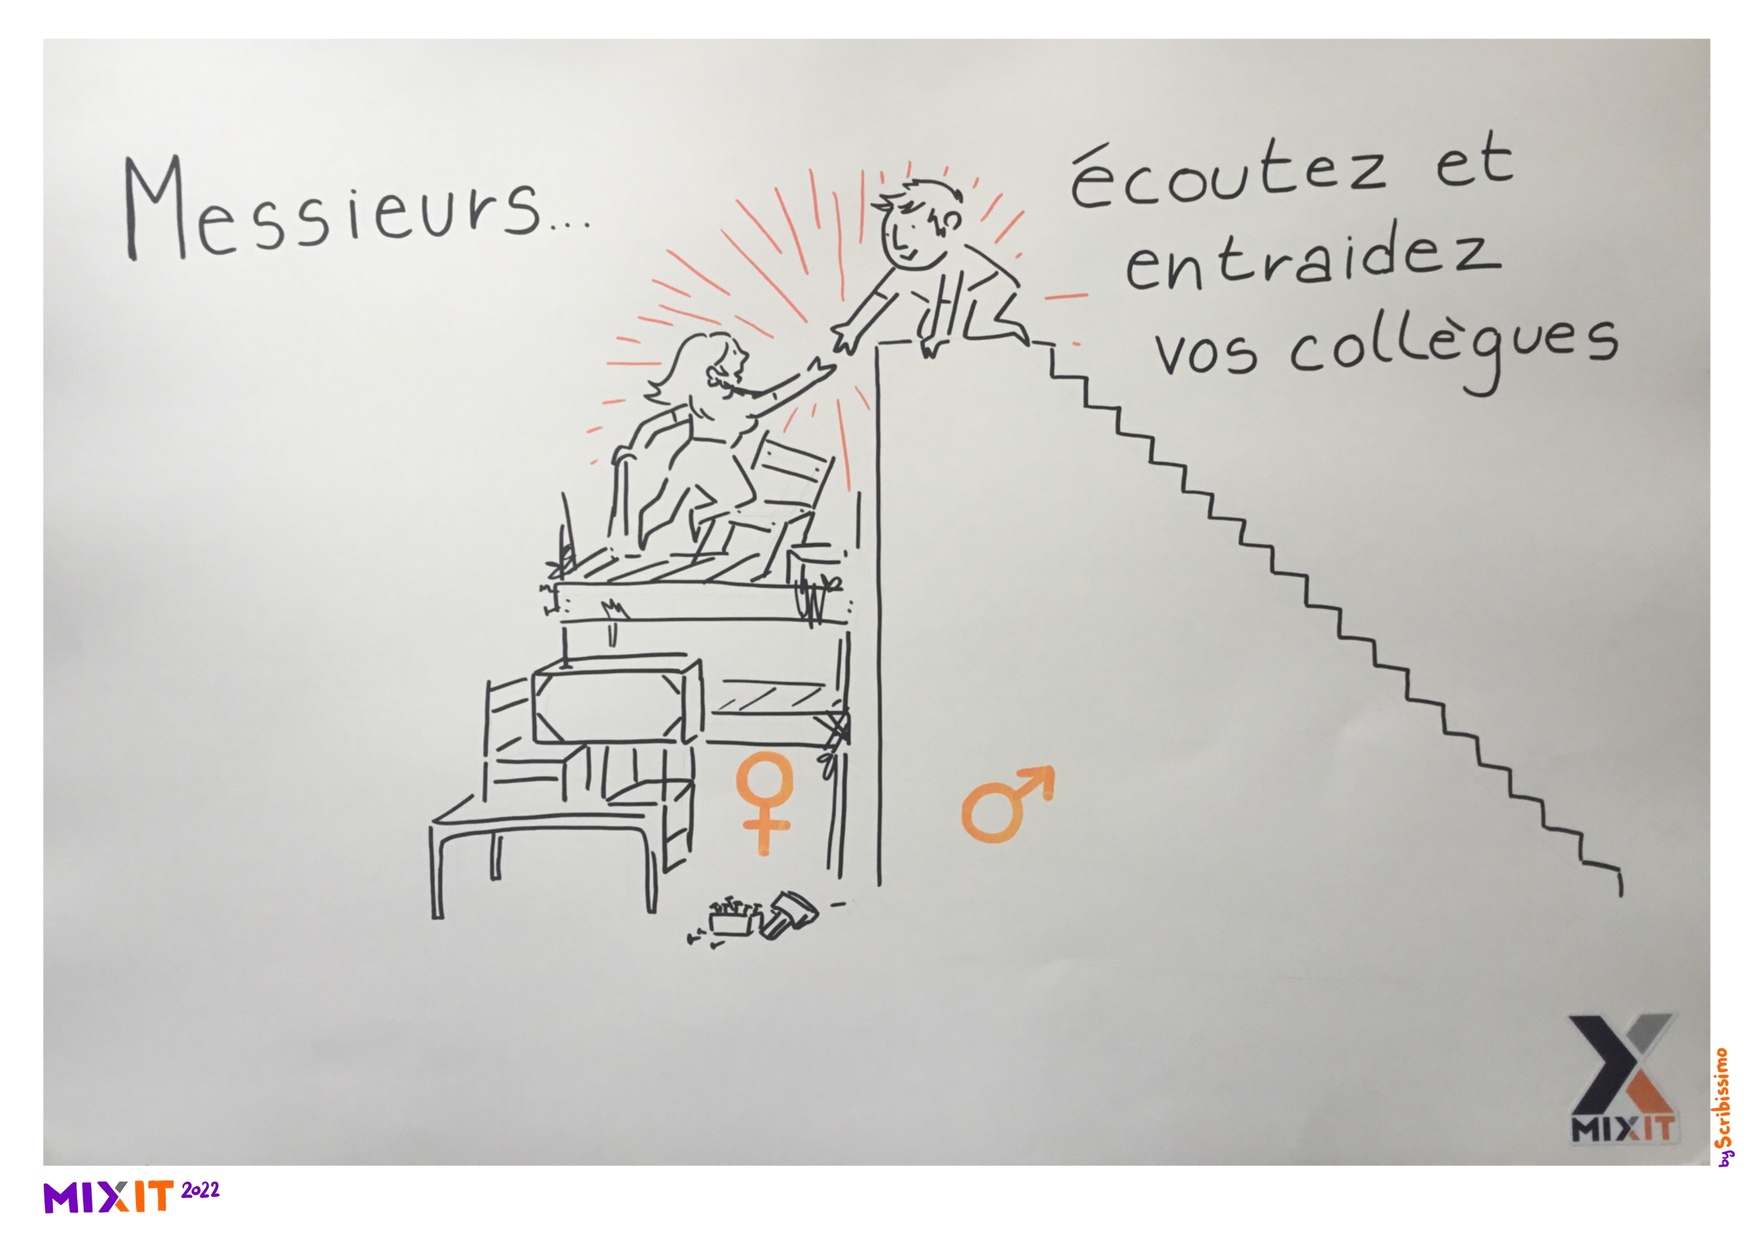 Messieurs...
écoutez et
entraidez
vos collègues
MIXIT
by Scribissimo
MIXIT 2022